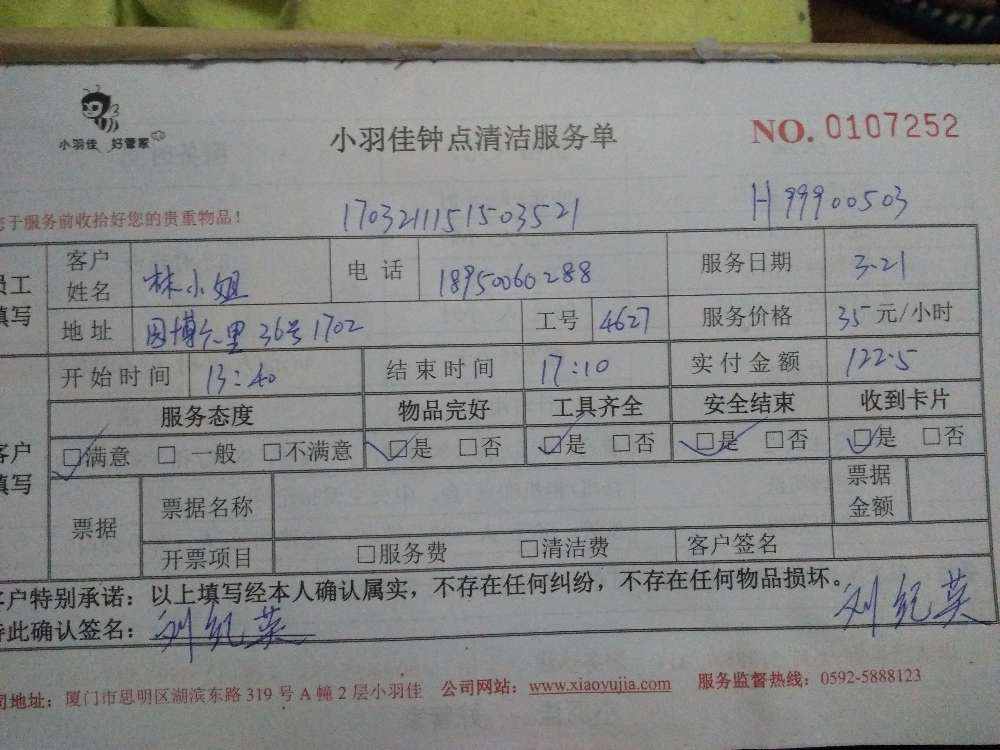 小羽佳 好管家
小羽佳钟点清洁服务单
NO. 0107252
于服务前收拾好您的贵重物品！
1703211151503521
H99900503
员工填写
客户姓名 林小姐 电话 18950060288 服务日期 3.21
地址 园博二里36号1702 工号 4627 服务价格 35元/小时
开始时间 13:40 结束时间 17:10 实付金额 122.5
客户填写
服务态度 物品完好 工具齐全 安全结束 收到卡片
☑满意 □一般 □不满意 ☑是 □否 ☑是 □否 ☑是 □否 ☑是 □否
票据 票据名称 票据金额
开票项目 □服务费 □清洁费 客户签名
客户特别承诺：以上填写经本人确认属实，不存在任何纠纷，不存在任何物品损坏。
此确认签名：刘纪英 刘纪英
地址：厦门市思明区湖滨东路319号A幢2层小羽佳 公司网站：www.xiaoyujia.com 服务监督热线：0592-5888123